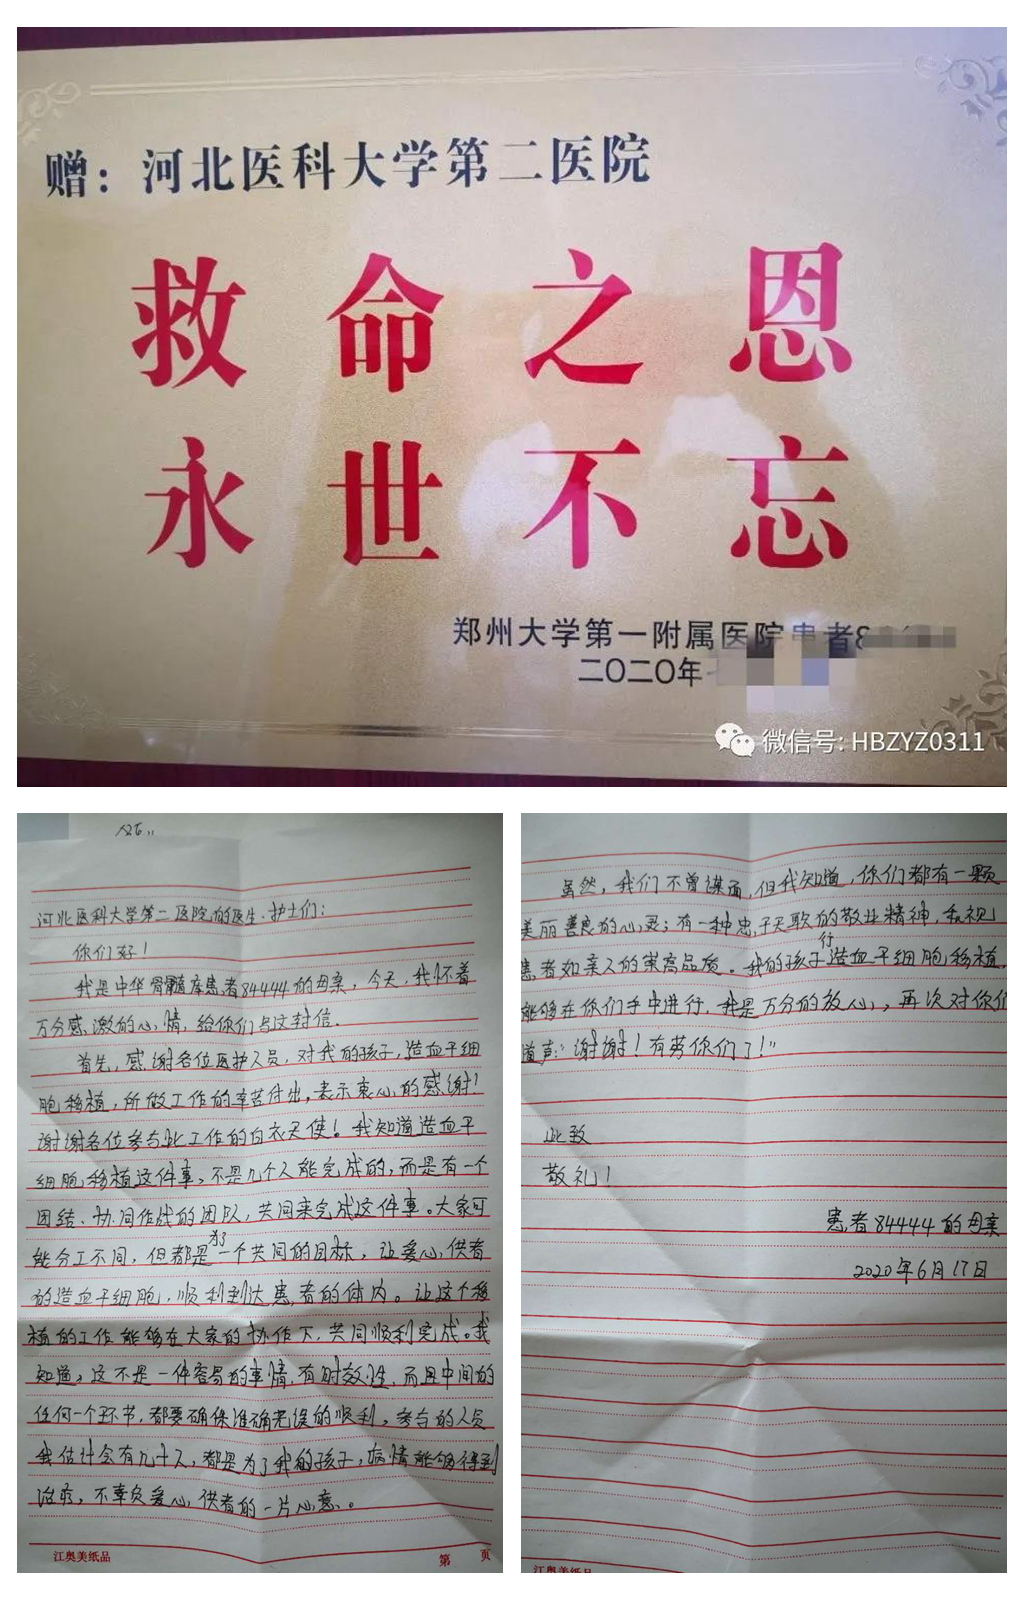 赠：河北医科大学第二医院
救命之恩
永世不忘
郑州大学第一附属医院患者8
二〇二〇年
微信号: HBZYZ0311
河北医科大学第二医院的医生、护士们：
你们好！
我是中华骨髓库患者84444的母亲，今天，我怀着
万分感激的心情，给你们写这封信．
首先，感谢各位医护人员，对我的孩子，造血干细
胞移植，所做工作的辛苦付出，表示衷心的感谢！
谢谢各位参与此工作的白衣天使！我知道造血干
细胞移植这件事，不是几个人能完成的；而是有一个
团结、协同作战的团队，共同来完成这件事。大家可
能分工不同，但都是为了一个共同的目标，让爱心供者
的造血干细胞，顺利到达患者的体内。让这个移
植的工作能够在大家的协作下，共同顺利完成。我
知道，这不是一件容易的事情，有时效性，而且中间的
任何一个环节，都要确保准确无误的顺利，参与的人员
我估计会有几十人，都是为了我的孩子，病情能够得到
治疗，不辜负爱心供者的一片心意。
江奥美纸品
第 页
虽然，我们不曾谋面，但我知道，你们都有一颗
美丽善良的心灵；有一种忠于天职的敬业精神，和视
患者如亲人的崇高品质。我的孩子行造血干细胞移植，
能够在你们手中进行，我是万分的放心，，再次对你们
道声：“谢谢！有劳你们了！”
此致
敬礼！
患者84444的母亲
2020年6月17日
江奥美纸品